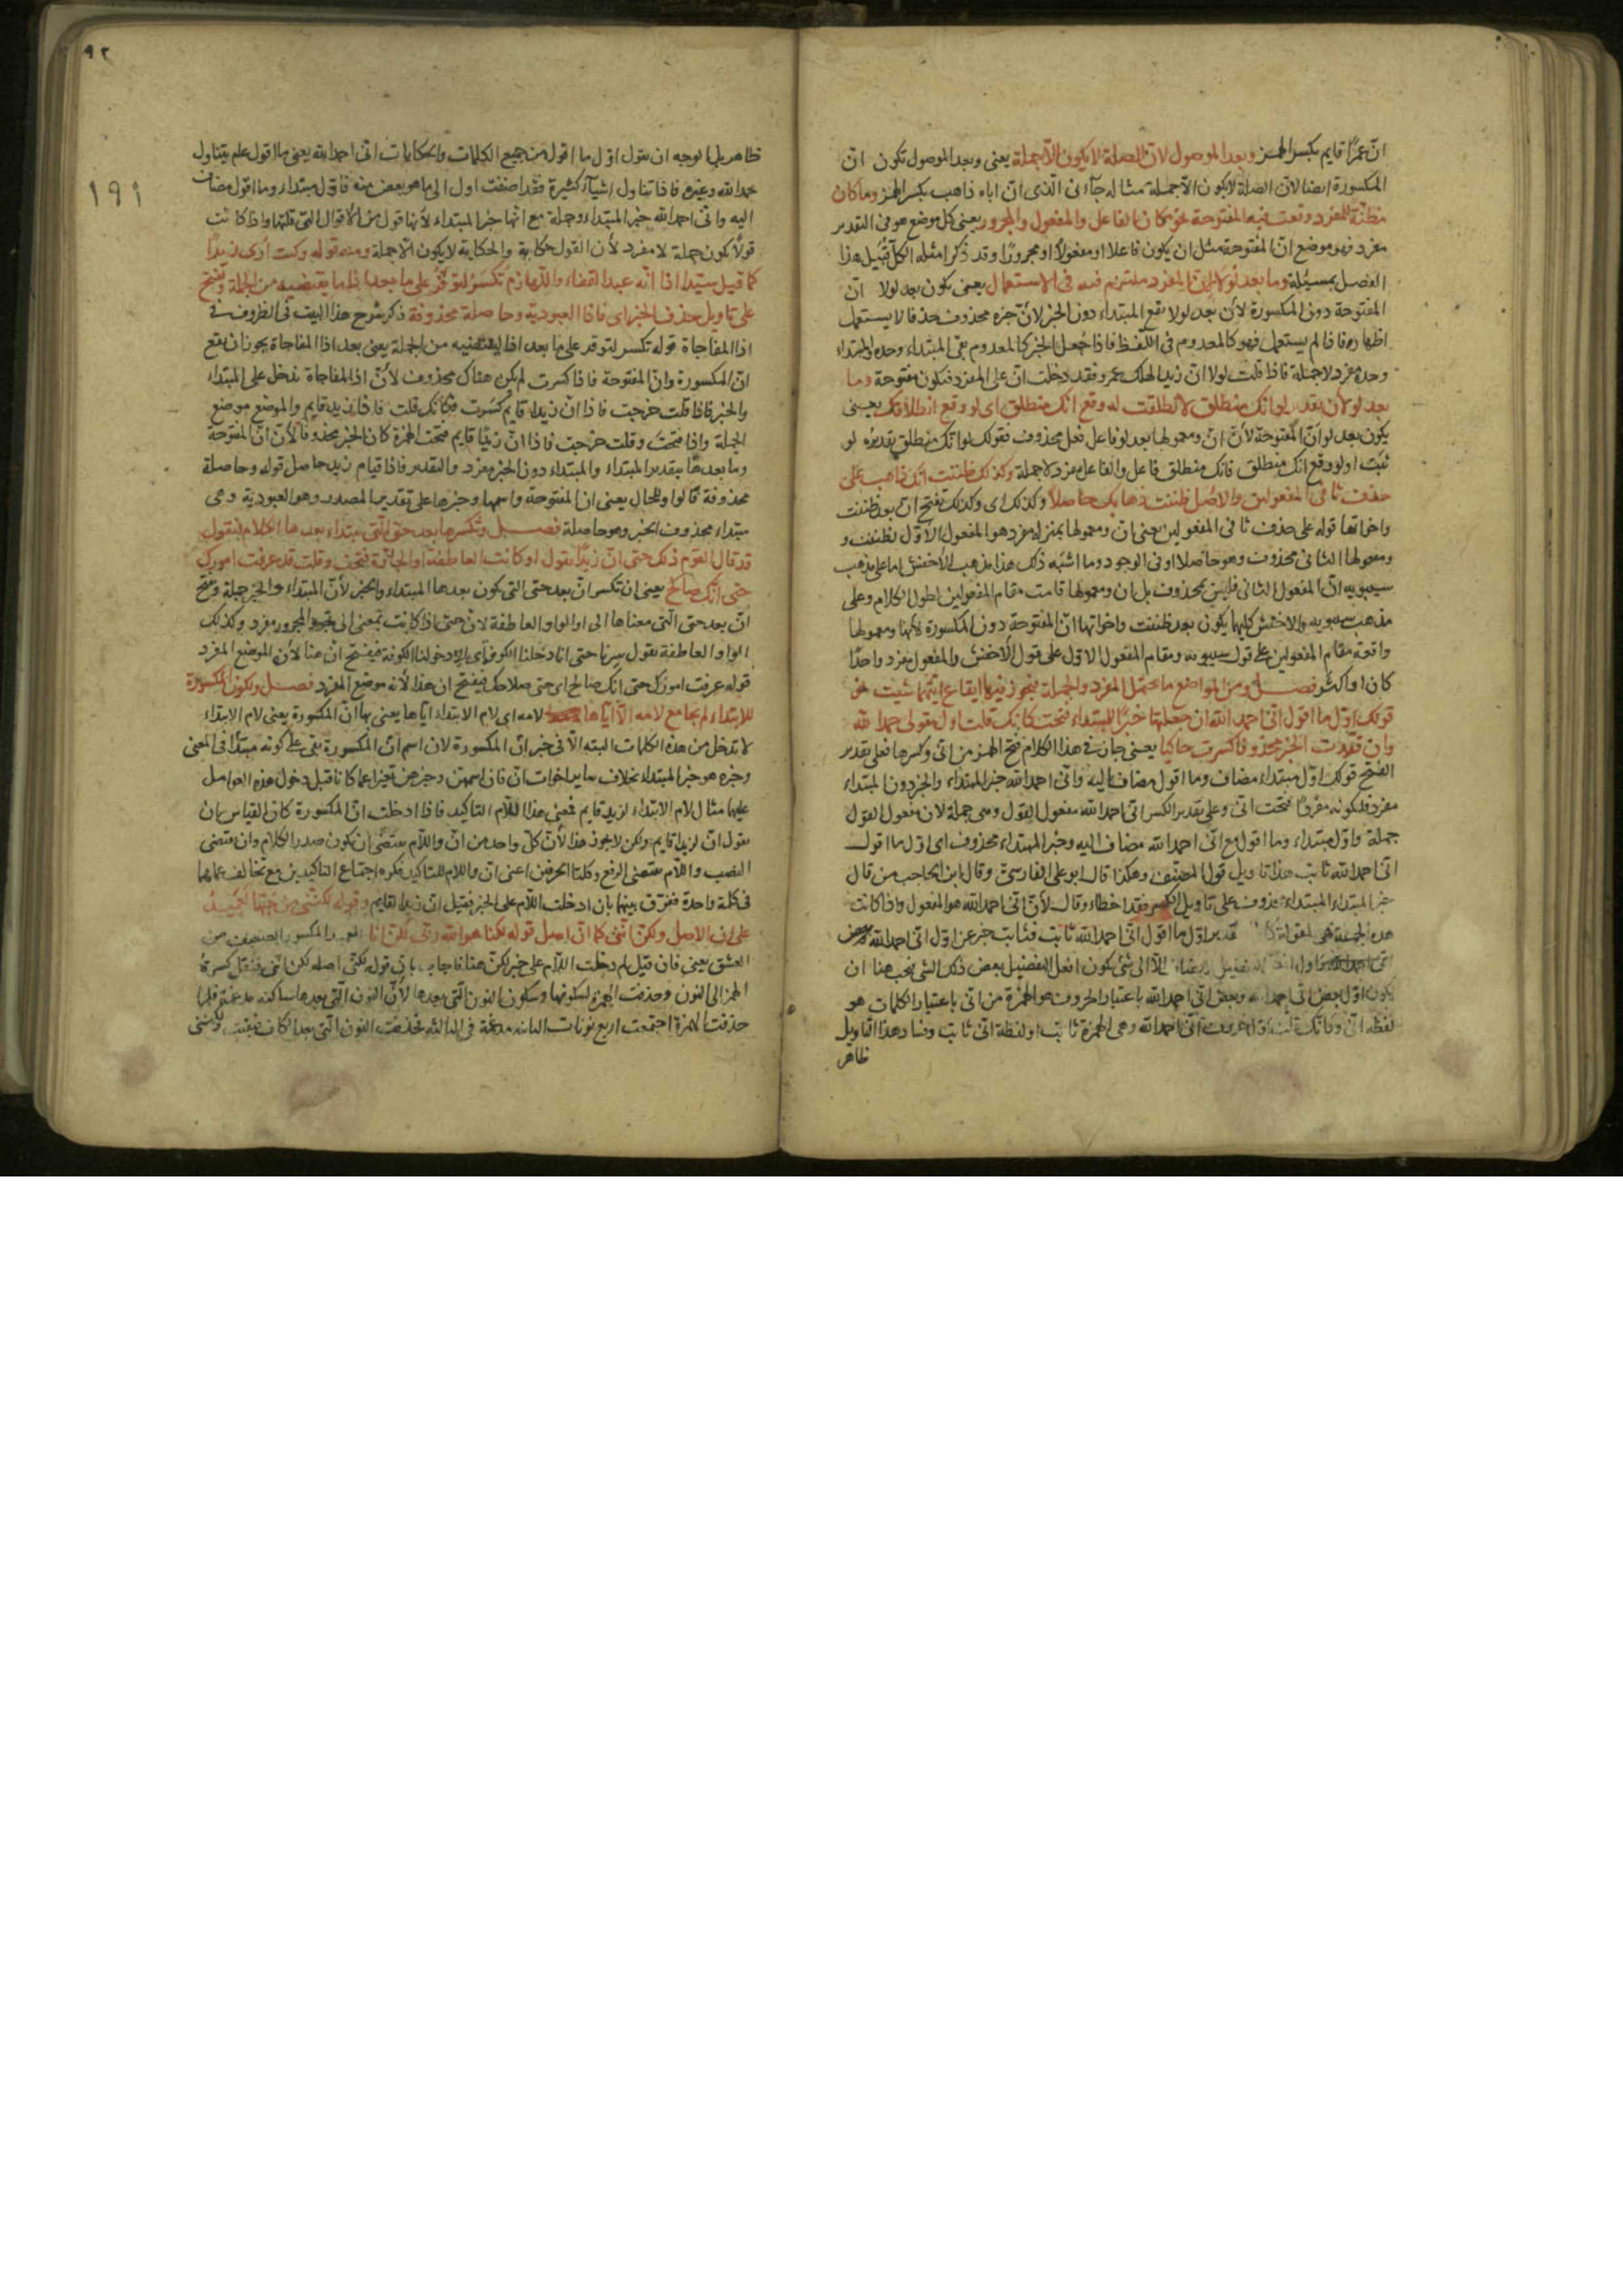 انّ عمرًا قايم بكسر الهمز وبعد الموصول لانّ الصلة لا يكون الّا جملة يعنى وبعد الموصول تكون انّ
المكسورة ايضا لانّ الصلة لا يكون الّا جملة مثاله جآءنى الّذى انّ اباه ذاهب بكسر الهمز وما كان
مظنّة للمفرد وقعت فيه المفتوحة نحو مكان الفاعل والمفعول والمجرور يعنى كل موضع هو فى التقدير
مفرد فهو موضع انّ المفتوحة مثل ان يكون فاعلا او مفعولًا او مجرورًا وقد ذكر امثلة الكلّ قبيل هذا
الفصل بمسئلة وما بعد لولا لانّ المفرد ملتزم فيه فى الاستعمال يعنى يكون بعد لولا انّ
المفتوحة دون المكسورة لانّ بعد لولا يقع المبتداء دون الخبر لانّ خبره محذوف حذفا لا يستعمل
اظهاره فاذا لم يستعمل فهو كالمعدوم فى اللّفظ فاذا جُعل الخبر كالمعدوم بقى المبتداء وحده والمبتداء
وحده مفرد لا جملة فاذا قلت لولا انّ زيدا لهلك عمرو فقد دخلت انّ على المفرد فتكون مفتوحة وما
بعد لو لانّ تقدير لو انّك منطلق لانطلقت لو وقع انّك منطلق اى لو وقع انطلاقك يعنى
يكون بعد لو انّ المفتوحة لانّ انّ ومعمولها بعد لو فاعل فعل محذوف فقولك لو انّك منطلق تقديره لو
ثبت او لو وقع انّك منطلق فانّك منطلق فاعل والفاعل مفرد لا جملة وكذلك ظننت انّك ذاهب على
حذف ثانى المفعولين والاصل ظننت ذهابك حاصلًا وكذلك اى وكذلك تفتح انّ بعد ظننت
واخواتها قوله على حذف ثانى المفعولين يعنى انّ ومعمولها بمنزلة مفرد هو المفعول الاوّل لظننت و
ومعمولها الثانى محذوف وهو حاصلا او فى الوجود وما اشبه ذلك هذا مذهب الاخفش اما على مذهب
سيبويه انّ المفعول الثانى فليس بمحذوف بل ان ومعمولها قامت مقام المفعولين لطول الكلام وعلى
مذهب سيبويه والاخفش كليهما يكون بعد ظننت واخواتها انّ المفتوحة دون المكسورة لانّها ومعمولها
واقعة مقام المفعولين على قول سيبويه ومقام المفعول الاوّل على قول الاخفش والمفعول مفرد واحدًا
كان او اكثر فصل ومن المواضع ما يحتمل المفرد والجملة فيجوز فيها ايقاع ايّتهما شيت نحو
قولك اوّل ما اقول انّى احمد الله ان جعلتها خبرًا للمبتداء فتحت كانّك قلت اوّل مقولى حمد الله
وان قدّرت الخبر محذوفا كسرت حاكيا يعنى جاز فى هذا الكلام فتح الهمز من انّى وكسرها فعلى تقدير
الفتح قولك اوّل مبتداء مضاف وما اقول مضاف اليه وانّى احمد الله خبر المبتداء والخبر دون المبتداء
مفرد فلكونه مفردًا فتحت انّى وعلى تقدير الكسر انّى احمد الله مفعول القول وهى جملة لان مفعول القول
جملة واوّل مبتداء وما اقول مع انّى احمد الله مضاف اليه وخبر المبتداء محذوف اى اوّل ما اقول
انّى احمد الله ثابت هذا تاويل قول المصنف وهكذا قال ابو على الفارسىّ وقال ابن الحاجب من قال
خبر المبتداء محذوف على تاويل الكسر فقد اخطاء وقال لانّ انّى احمد الله هو المفعول واذا كانت
هذه الجملة هى اوّل ما اقول انّى احمد الله ثابت فثابت خبر عن اوّل انّى احمد الله
الّا الى شئ يكون افعل التفضيل بعض ذلك الشئ فيجب هنا ان
يكون اوّل بعض انّى احمد الله وبعض انّى احمد الله باعتبار الحروف هو الهمزة من انّى باعتبار الكلمات هو
لفظة انّ وكانّك قلت اوّل حروف انّى احمد الله وهى الهمزة ثابت او لفظة انّى ثابت وفساد هذا التاويل
ظاهر
٩٢
١٩١
ظاهر بل الوجه ان نقول اوّل ما اقول من جميع الكلمات والحكايات انّى احمد الله يعنى ما اقول علم يتناول
حمد الله وغيره فاذا تناول اشيآء كثيرة فقد اضفت اول الى ما هو بعض منه فاوّل مبتداء وما اقول مضاف
اليه وانّى احمد الله خبر المبتداء وجملة مع انّها خبر المبتداء لانّها قول من الاقوال التى قلتها واذا كانت
قولًا يكون جملة لا مفرد لانّ القول حكاية والحكاية لا يكون الّا جملة ومنه قوله وكنت اُرى زيدًا
كما قيل سيّدا اذا انّه عبد القفاء واللّهازم تكسر لتوفّر على ما بعد اذا ما يقتضيه من الجملة وتفتح
على تاويل حذف الخبر اى فاذا العبودية وحاصلة محذوفة ذكر شرح هذا البيت فى الظروف فى
اذا المفاجاة قوله تكسر لتوفر على ما بعد اذا ما يقتضيه من الجملة يعنى بعد اذا المفاجاة يجوز ان يقع
انّ المكسورة وانّ المفتوحة فاذا كسرت لم يكن هناك محذوف لانّ اذا المفاجاة تدخل على المبتداء
والخبر فاذا قلت خرجت فاذا انّ زيدا قايم كسرت فكانّك قلت فاذا زيد قايم والموضع موضع
الجملة واذا فتحت وقلت خرجت فاذا انّ زيدًا قايم فتحت الهمزة كان الخبر محذوفا لانّ انّ المفتوحة
وما بعدها بتقدير المبتداء والمبتداء دون الخبر مفرد والتقدير فاذا قيام زيد حاصل قوله وحاصلة
محذوفة قالوا وللحال يعنى انّ المفتوحة واسمها وخبرها على تقدير المصدر وهو العبودية وهى
مبتداء محذوف الخبر وهو حاصلة فصل وتكسرها بعد حتى التى يبتداء بعدها الكلام فتقول
قد قال القوم ذلك حتى انّ زيدًا يقول او كانت العاطفة او الجارّة فتحت وقلت قد عرفت امورك
حتى انّك صالح يعنى ان تكسر انّ بعد حتى التى يكون بعدها المبتداء والخبر لانّ المبتداء والخبر جملة وتفتح
انّ بعد حتى الّتى معناها الى او الواو العاطفة لانّ حتى اذا كانت بمعنى الى المجرور مفرد وكذلك
الواو العاطفة نقول سرنا حتى انا دخلنا الكوفة اى الى دخولنا الكوفة فيفتح انّ هنا لانّ الموضع المفرد
قوله عرفت امورك حتى انّك صالح اى حتى صلاحك فيفتح ان هذا لانّه موضع المفرد فصل ولكون المكسورة
للابتداء لم يجامع لامه الّا ايّاها لامه اى لام الابتداء ايّاها يعنى بها انّ المكسورة يعنى لام الابتداء
لا تدخل من هذه الكلمات البته الّا فى خبر انّ المكسورة لان اسم انّ المكسورة بقى على كونه مبتدأ فى المعنى
وخبره هو خبر المبتداء بخلاف ساير اخوات انّ فان اسمهنّ وخبرهنّ تغيّرا عما كانا قبل دخول هذه العوامل
عليها مثال لام الابتداء لزيد قايم فمعنى هذا اللّام التاكيد فاذا ادخلت انّ المكسورة كان القياس بان
نقول انّ لزيدا قايم ولكن لا يجوز هذا لانّ كلّ واحد من انّ واللّام يقتضى ان يكون صدر الكلام وانّ تقتضى
النصب واللّام تقتضى الرفع وكلتا الحرفين اعنى انّ واللام للتاكيد فكره اجتماع التاكيدين مع تخالف عملهما
فى كلمة واحدة ففرّق بينهما بان ادخلت اللّام على الخبر فقيل انّ زيدا لقايم وقوله لكنّنى من حبّها لعميدُ
على انّ الاصل ولكنّ انّنى كما انّ اصل قوله لكنّا هو الله ربّى لكنّ انا العميد المكسور الضعيف من
العشق يعنى فان قيل لم دخلت اللّام على خبر لكنّ هنا فاجاب بانّ قوله لكنّى اصله لكن انّنى فنقل كسرة
الهمز الى النون وحذفت الهمزة لسكونها وسكون النون الّتى بعدها لانّ النون الّتى بعدها ساكنة مدغمة فلمّا
حذفت الهمزة اجتمعت اربع نونات الثانية مدغمة فى الثالثة فحذفت النون الّتى بعد الكاف فبقيت لكنّنى